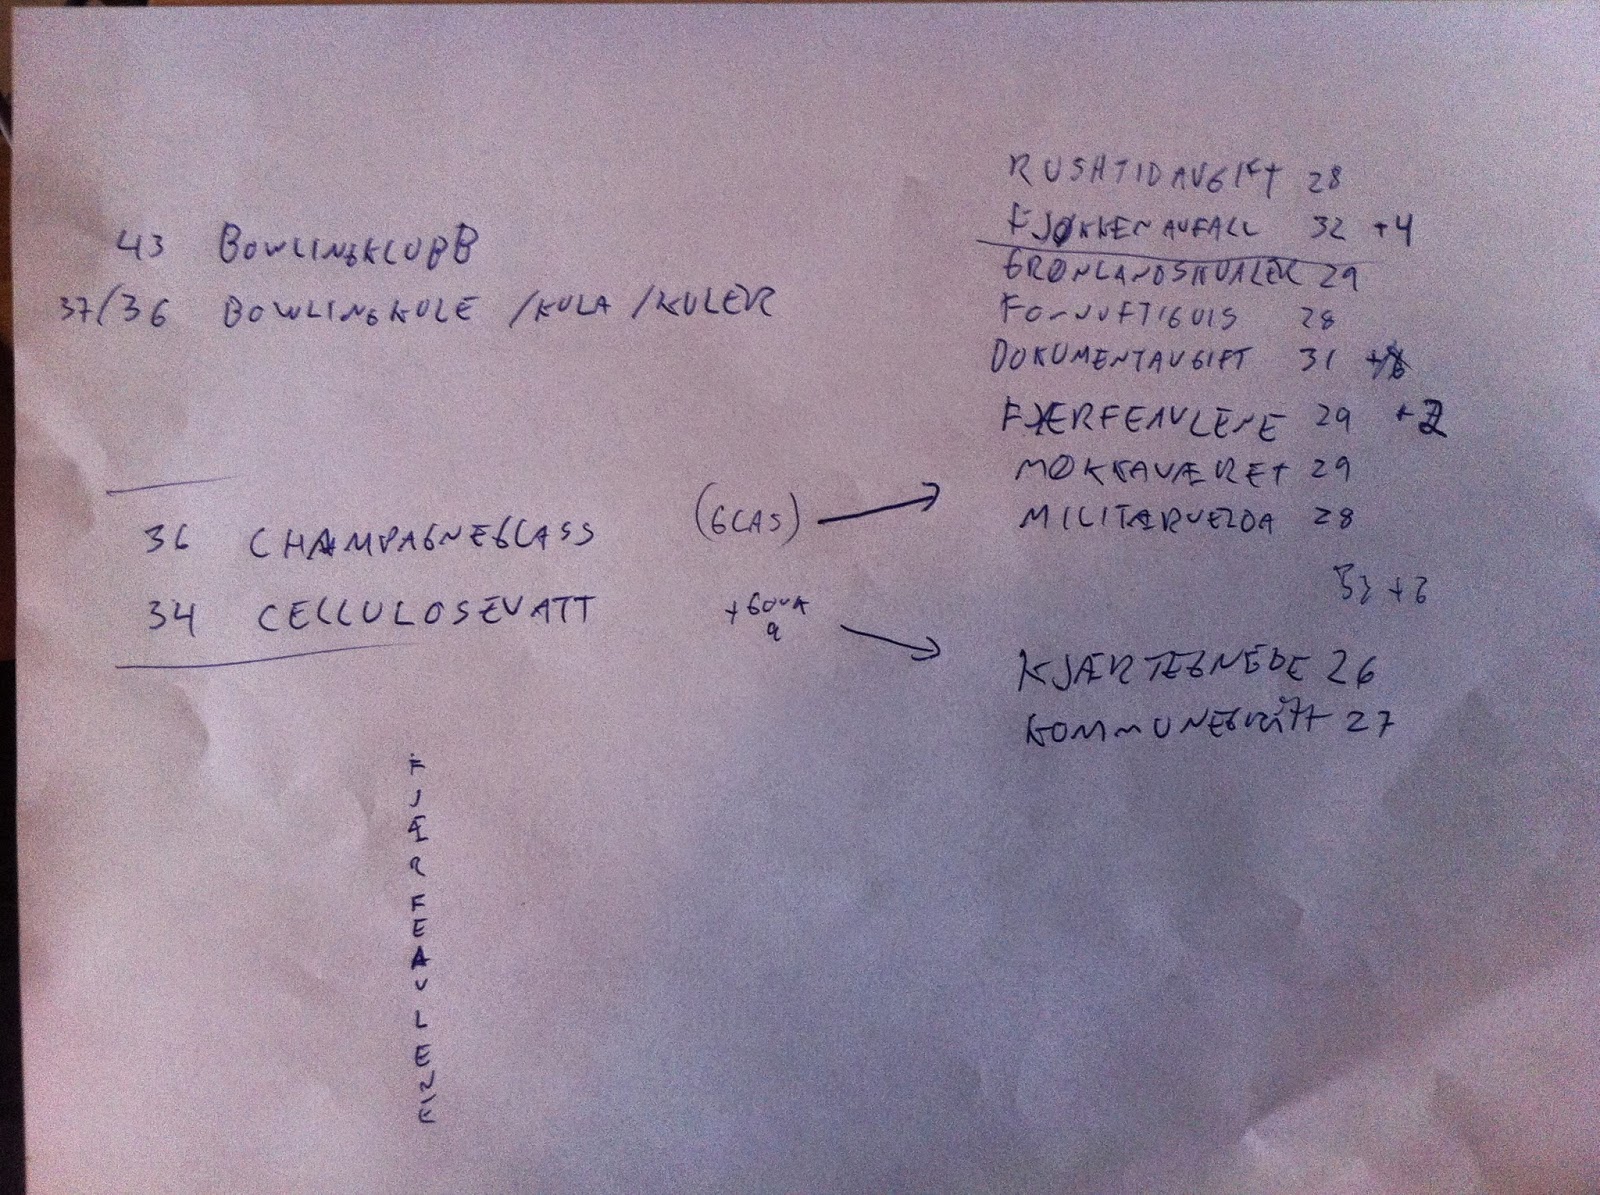 43 BOWLINGKLUBB
37/36 BOWLINGKULE /KULA /KULER
36 CHAMPAGNEGLASS (GLAS)
34 CELLULOSEVATT
RUSHTIDAVGIFT 28
FJØKKENAVFALL 32 +4
GRØNLANDSHVALER 29
FORNUFTIGVIS 28
DOKUMENTAVGIFT 31
FJÆRFEAVLENE 29 +2
MØKKAVÆRET 29
MILITÆRVELDA 28
KJÆRTEGNEDE 26
KOMMUNEGRÅTT 27
F
J
Æ
R
F
E
A
V
L
E
N
E